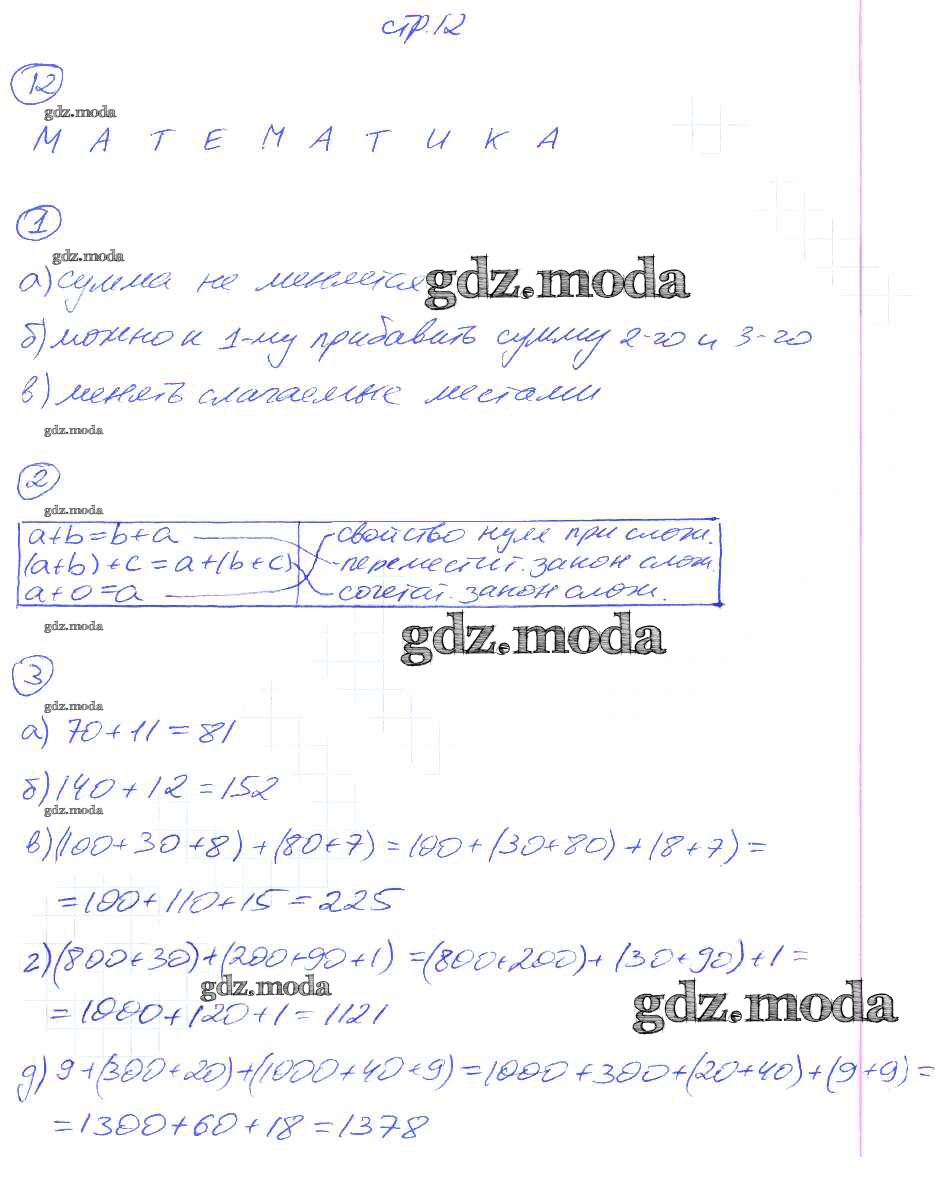 стр.12
12
gdz.moda
М А Т Е М А Т И К А
1
gdz.moda
а) сумма не меняется
gdz.moda
б) можно к 1-му прибавить сумму 2-го и 3-го
в) менять слагаемые местами
gdz.moda
2
gdz.moda
a+b=b+a свойство нуля при слож.
(a+b)+c=a+(b+c) переместит. закон слож.
a+0=a сочетат. закон слож.
gdz.moda
gdz.moda
3
gdz.moda
а) 70+11=81
б) 140+12=152
gdz.moda
в) (100+30+8)+(80+7)=100+(30+80)+(8+7)=
=100+110+15=225
г) (800+30)+(200+90+1)=(800+200)+(30+90)+1=
gdz.moda
=1000+120+1=1121
gdz.moda
д) 9+(300+20)+(1000+40+9)=1000+300+(20+40)+(9+9)=
=1300+60+18=1378